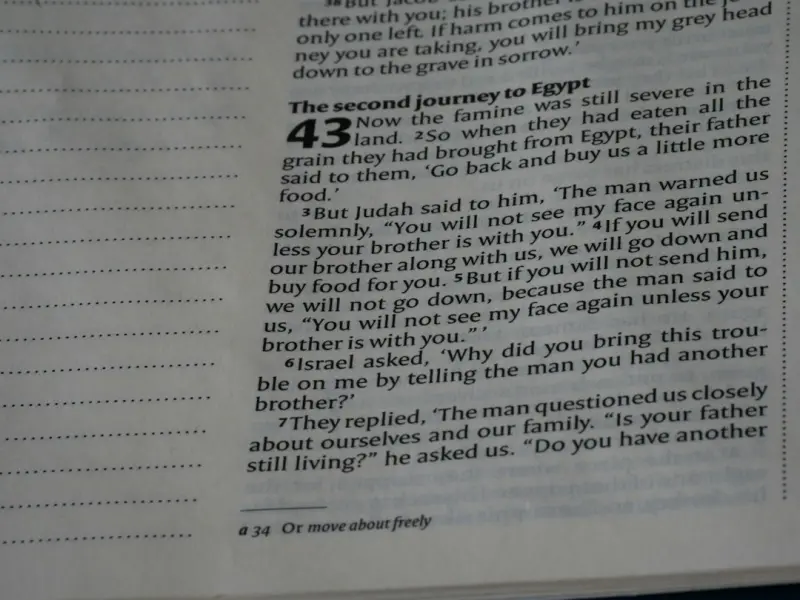 38 But Jacob
there with you; his brother
only one left. If harm comes to him on the
ney you are taking, you will bring my grey head
down to the grave in sorrow.’
The second journey to Egypt
43 Now the famine was still severe in the
land. 2 So when they had eaten all the
grain they had brought from Egypt, their father
said to them, ‘Go back and buy us a little more
food.’
3 But Judah said to him, ‘The man warned us
solemnly, “You will not see my face again un-
less your brother is with you.” 4 If you will send
our brother along with us, we will go down and
buy food for you. 5 But if you will not send him,
we will not go down, because the man said to
us, “You will not see my face again unless your
brother is with you.” ’
6 Israel asked, ‘Why did you bring this trou-
ble on me by telling the man you had another
brother?’
7 They replied, ‘The man questioned us closely
about ourselves and our family. “Is your father
still living?” he asked us. “Do you have another
a 34 Or move about freely